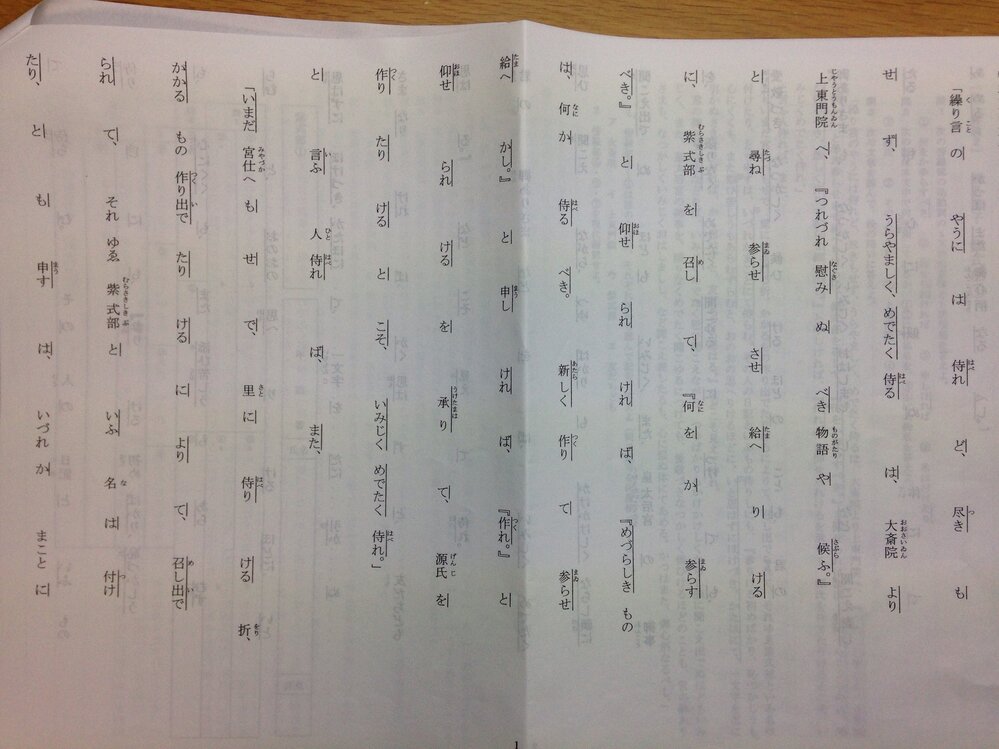 「繰り言の やうに は 侍れ ど、 尽き も
せ ず、 うらやましく、めでたく 侍る は、 大斎院 より
上東門院 へ、 『つれづれ 慰み ぬ べき 物語 や 候ふ。』
と 尋ね 参らせ させ 給へ り ける
に、 紫式部 を 召し て、 『何 を か 参らす
べき。』 と 仰せ られ けれ ば、 『めづらしき もの
は、 何 か 侍る べき。 新しく 作り て 参らせ
給へ かし。』 と 申し けれ ば、 『作れ。』 と
仰せ られ ける を 承り て、 源氏 を
作り たり ける と こそ、 いみじく めでたく 侍れ。」
と 言ふ 人 侍れ ば、 また、
「いまだ 宮仕へ も せ で、 里 に 侍り ける 折、
かかる もの 作り出で たり ける に より て、 召し出で
られ て、 それ ゆゑ 紫式部 と いふ 名 は 付け
たり、 と も 申す は、 いづれ か まこと に
1